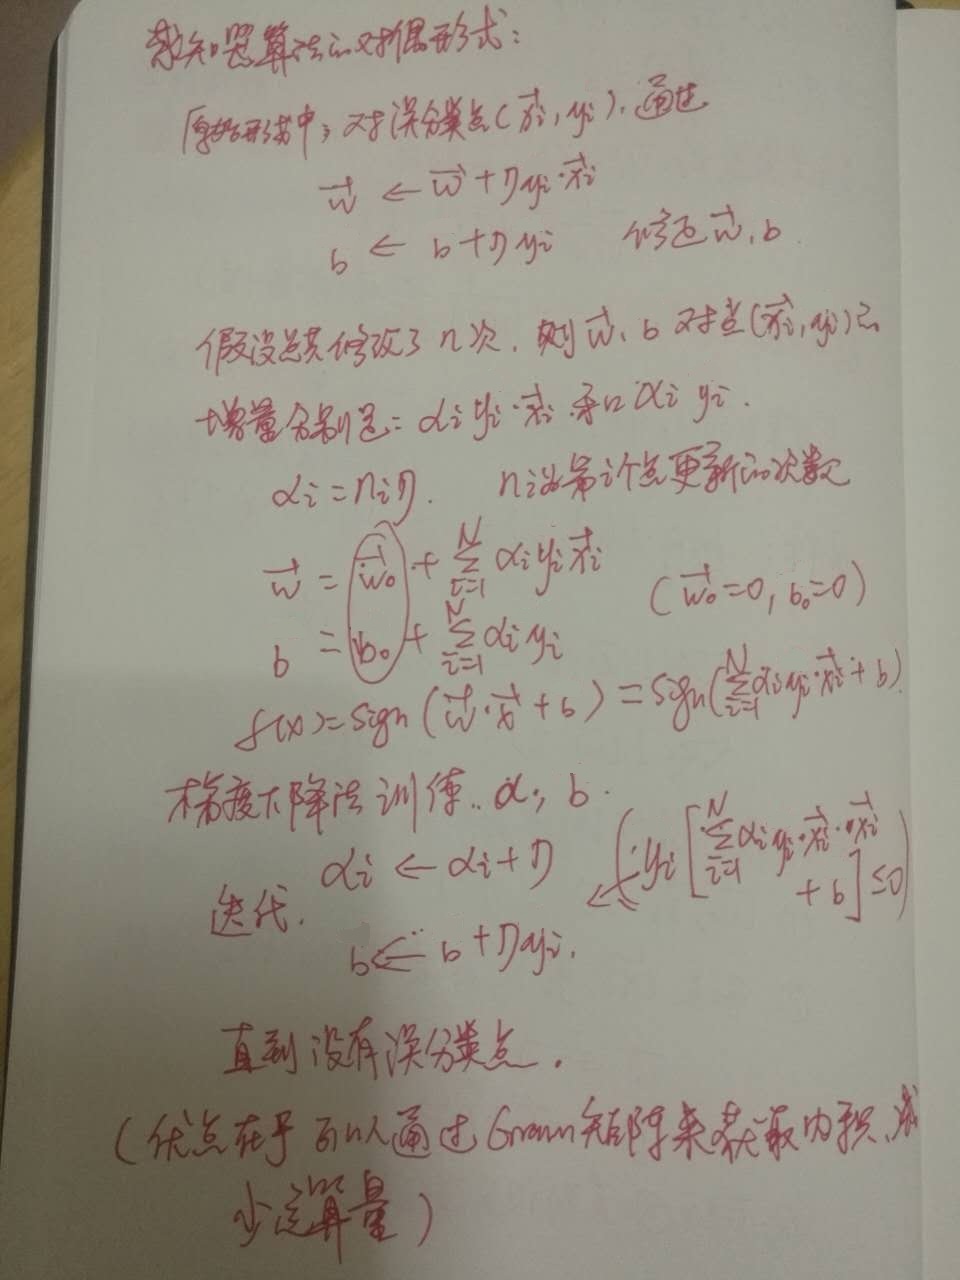 感知器算法的对偶形式:
原始形式中,对误分类点(x⃗i, yi),通过
w⃗ ← w⃗ + ηyi·x⃗i
b ← b + ηyi 修正w⃗,b
假设总共修改了n次,则w⃗,b对点(x⃗i, yi)的
增量分别是: αiyi·x⃗i和αiyi.
αi = niη. ni为第i个点更新的次数
w⃗ = w⃗₀ + Σ_{i=1}^{N} αiyix⃗i
(w⃗₀=0, b₀=0)
b = b₀ + Σ_{i=1}^{N} αiyi
f(x)=sign(w⃗·x⃗+b)=sign(Σ_{i=1}^{N} αiyi·x⃗i+b)
梯度下降法训练..α, b.
αi ← αi+η (yi[Σ_{i=1}^{N} αiyi·x⃗i·x⃗i
+b]≤0)
迭代.
b ← b+ηyi.
直到没有误分类点.
(优点在于可以通过Gram矩阵来获取内积,减
少运算量)